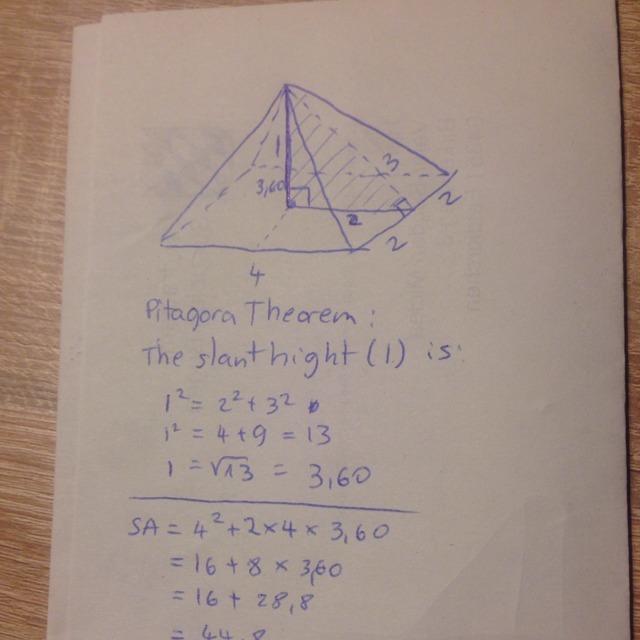 1
3,60
3
2
2
2
4
Pitagora Theorem:
The slant hight (1) is:
1² = 2² + 3²
1² = 4 + 9 = 13
1 = √13 = 3,60
SA = 4² + 2 x 4 x 3,60
= 16 + 8 x 3,60
= 16 + 28,8
= 44,8